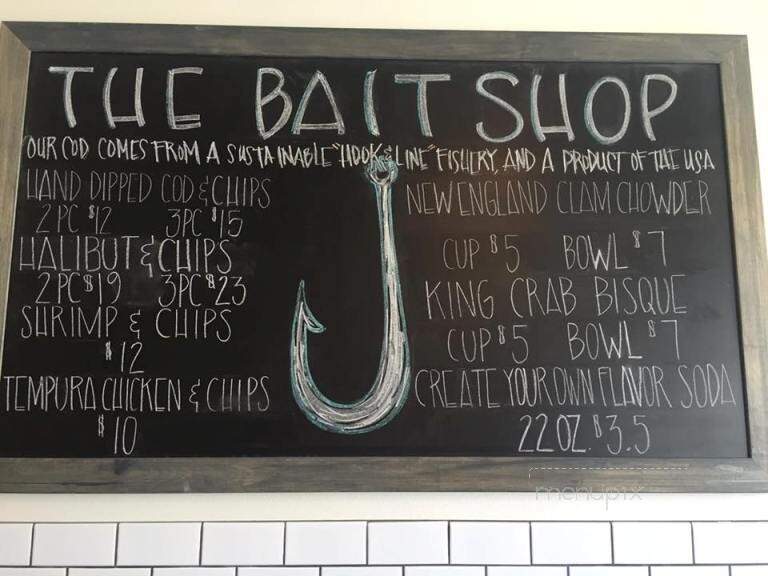 THE BAIT SHOP
OUR COD COMES FROM A SUSTAINABLE "HOOK & LINE" FISHERY, AND A PRODUCT OF THE USA
HAND DIPPED COD & CHIPS
2PC $12 3PC $15
HALIBUT & CHIPS
2PC $19 3PC $23
SHRIMP & CHIPS
$12
TEMPURA CHICKEN & CHIPS
$10
NEW ENGLAND CLAM CHOWDER
CUP $5 BOWL $7
KING CRAB BISQUE
CUP $5 BOWL $7
CREATE YOUR OWN FLAVOR SODA
22OZ. $3.5
menupix